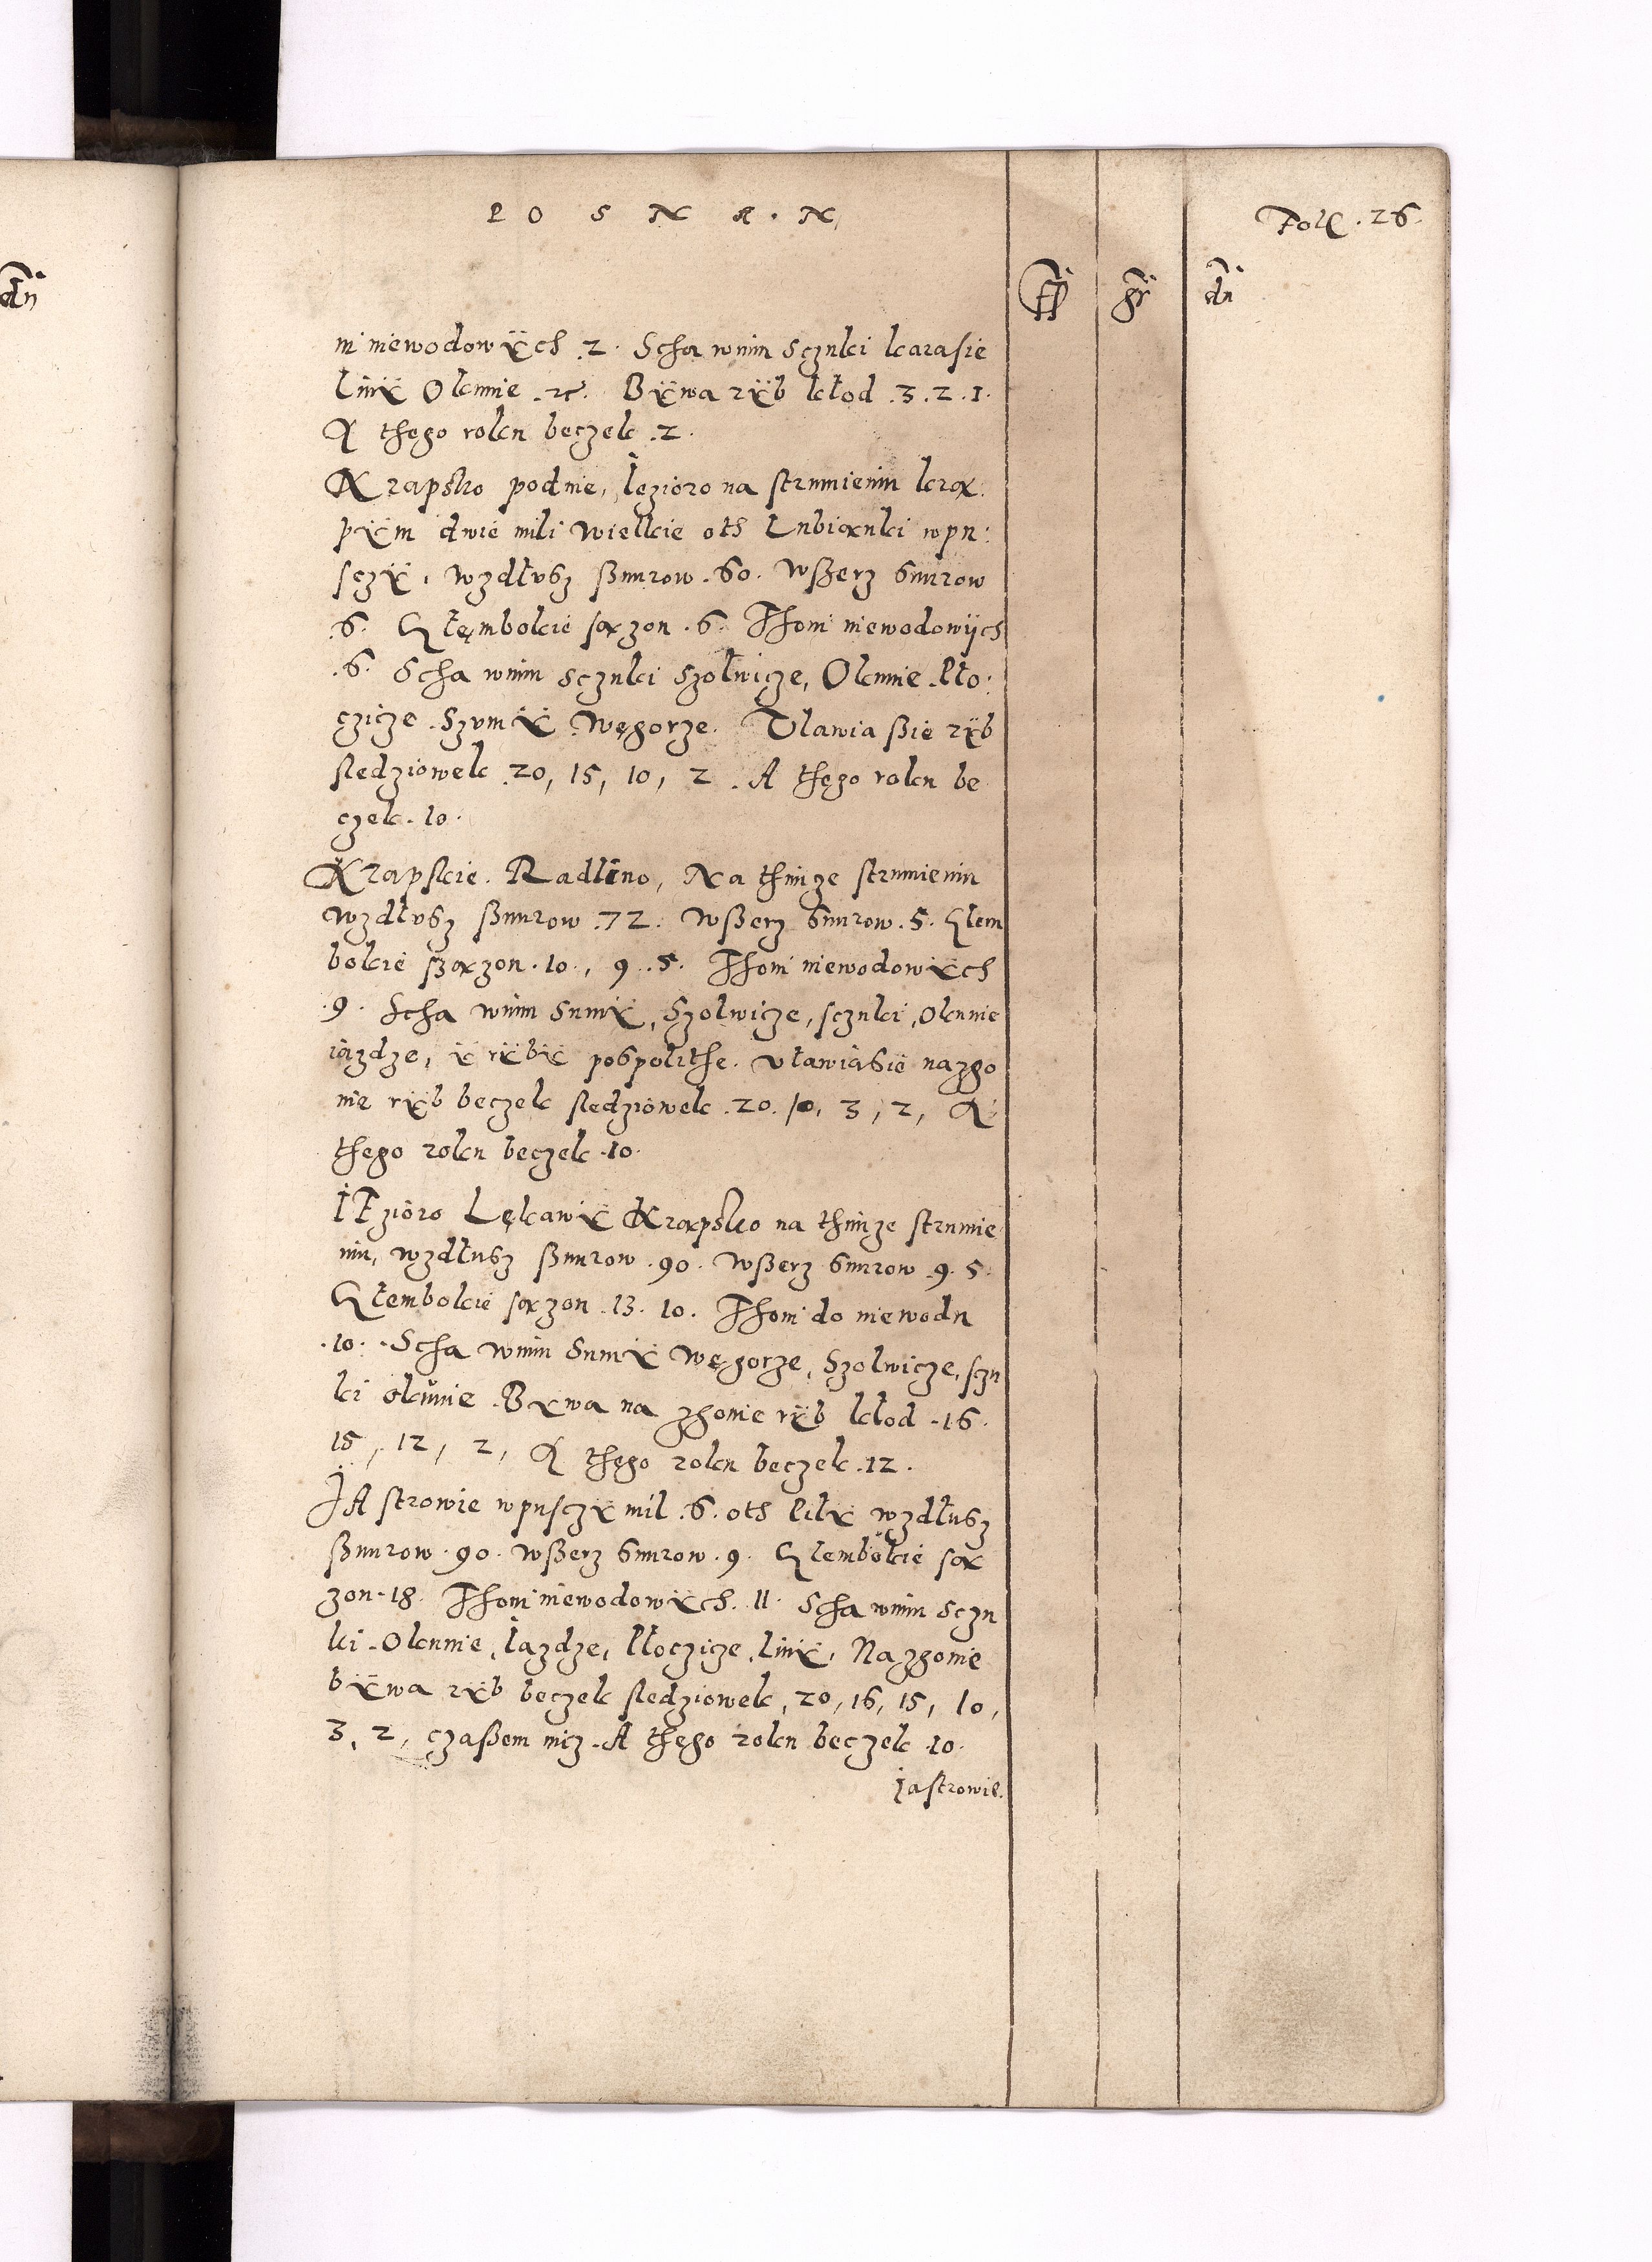 POSNAN
Fol. 26.
fl gr dn
dn
ni niewodowÿch .2. Scha wnim sczuki karasie
linÿ Okunie .2c. Bÿwa rÿb kłod .3.2.1.
A thego roku beczek .2.
Krapsko podnie, Iezioro na strumieniu kra:
pÿm dwie mili wielkie oth Lubianki wpu:
sczÿ, wzdłusz sznurow .60. wszerz snurow
.6. Głęmbokie sazon .6. Thoni niewodowÿch
.6. Scha wnim sczuki szolwicze, Okunie Pło:
czicze Szumÿ Węgorze. Vlawia szie rÿb
sledziowek .20, 15, 10, 2. A thego roku be
czek .10.
Krapskie. Radlino, Na thimze strumieniu
wzdłusz sznurow .72. wszerz snurow .5. Głem
bokie szazon .10., 9 .5. Thoni niewodowÿch
.9. Scha wnim sumÿ, Szolwicze, sczuki, Okunie
iazdze, ÿ rÿbÿ pospolithe. vławia sie nazgo
nie rÿb beczek sledziowek .20. 10, 3, 2, A
thego roku beczek .10.
IEzioro Lękawÿ Krapsko na thimze strumie
niu, wzdłusz sznurow .90. wszerz snurow .9. 5.
Głembokie sazon .13. 10. Thoni do niewodu
.10. Scha wnim sumÿ Węgorze, Szolwicze, sczu
ki okunie. Bÿwa na zgonie rÿb kłod .16.
15, 12, 2, A thego roku beczek .12.
IAstrowie wpusczÿ mil .6. oth Piłÿ wzdłusz
sznurow .90. wszerz snurow .9. Głembokie sa
zon .18. Thoni niewodowÿch .11. Scha wnim sczu
ki Okunie, Iazdze, Płoczicze, linÿ, Na zgonie
bÿwa rÿb beczek sledziowek, 20, 16, 15, 10,
3, 2, czaszem nicz. A thego roku beczek .10.
Jastrowie.